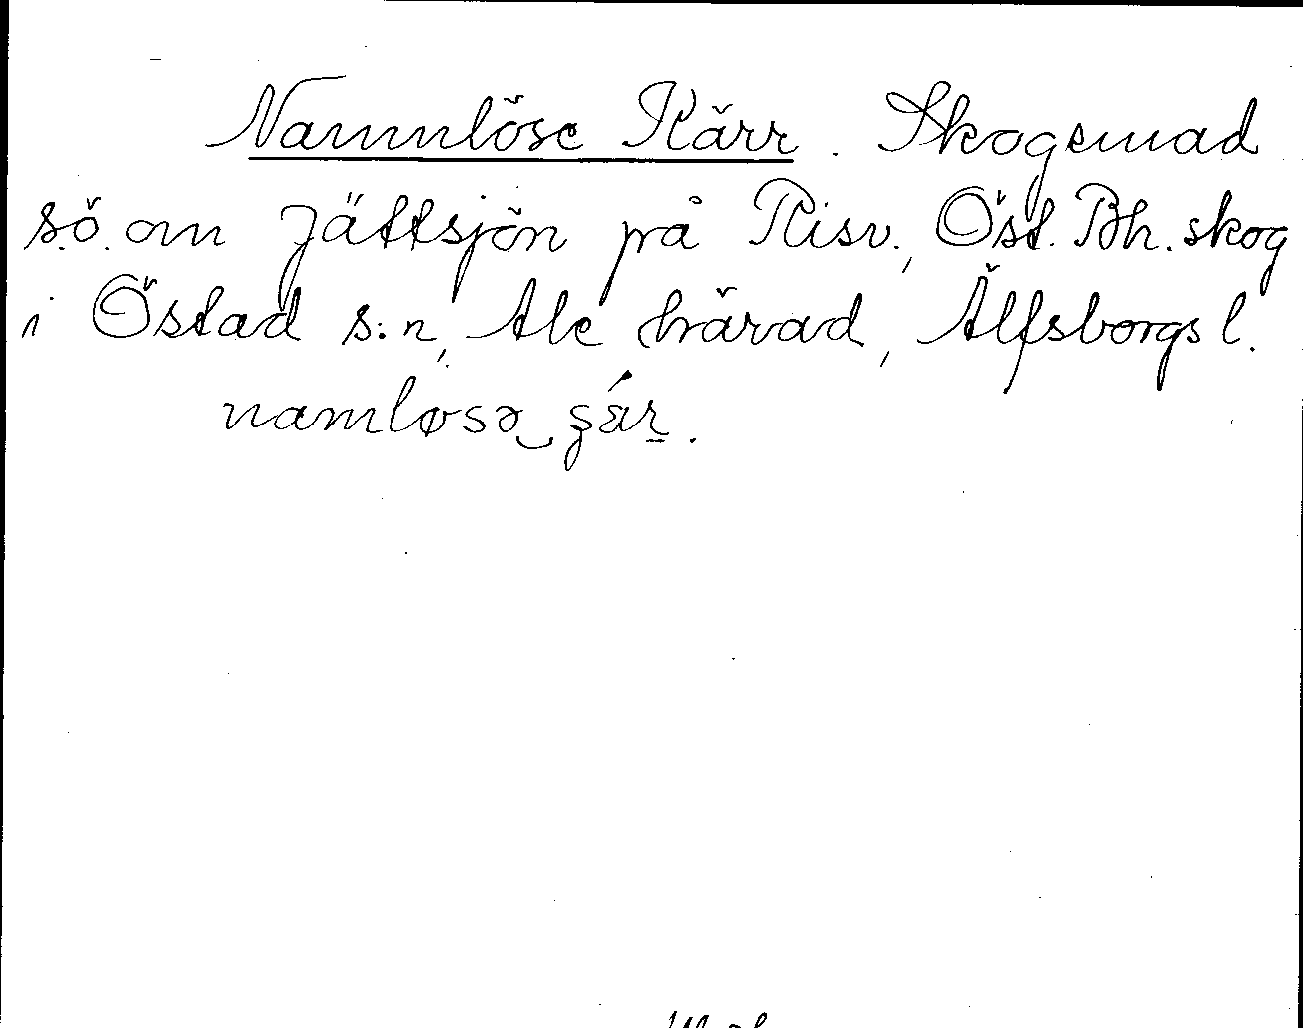 Namnlöse Kärr. Skogsmad
s.ö. om Jättsjön på Risv., Öst. Bh. skog
i Östad s:n, Ale härad, Älfsborgs l.
namløsə ʂɛ́ar.